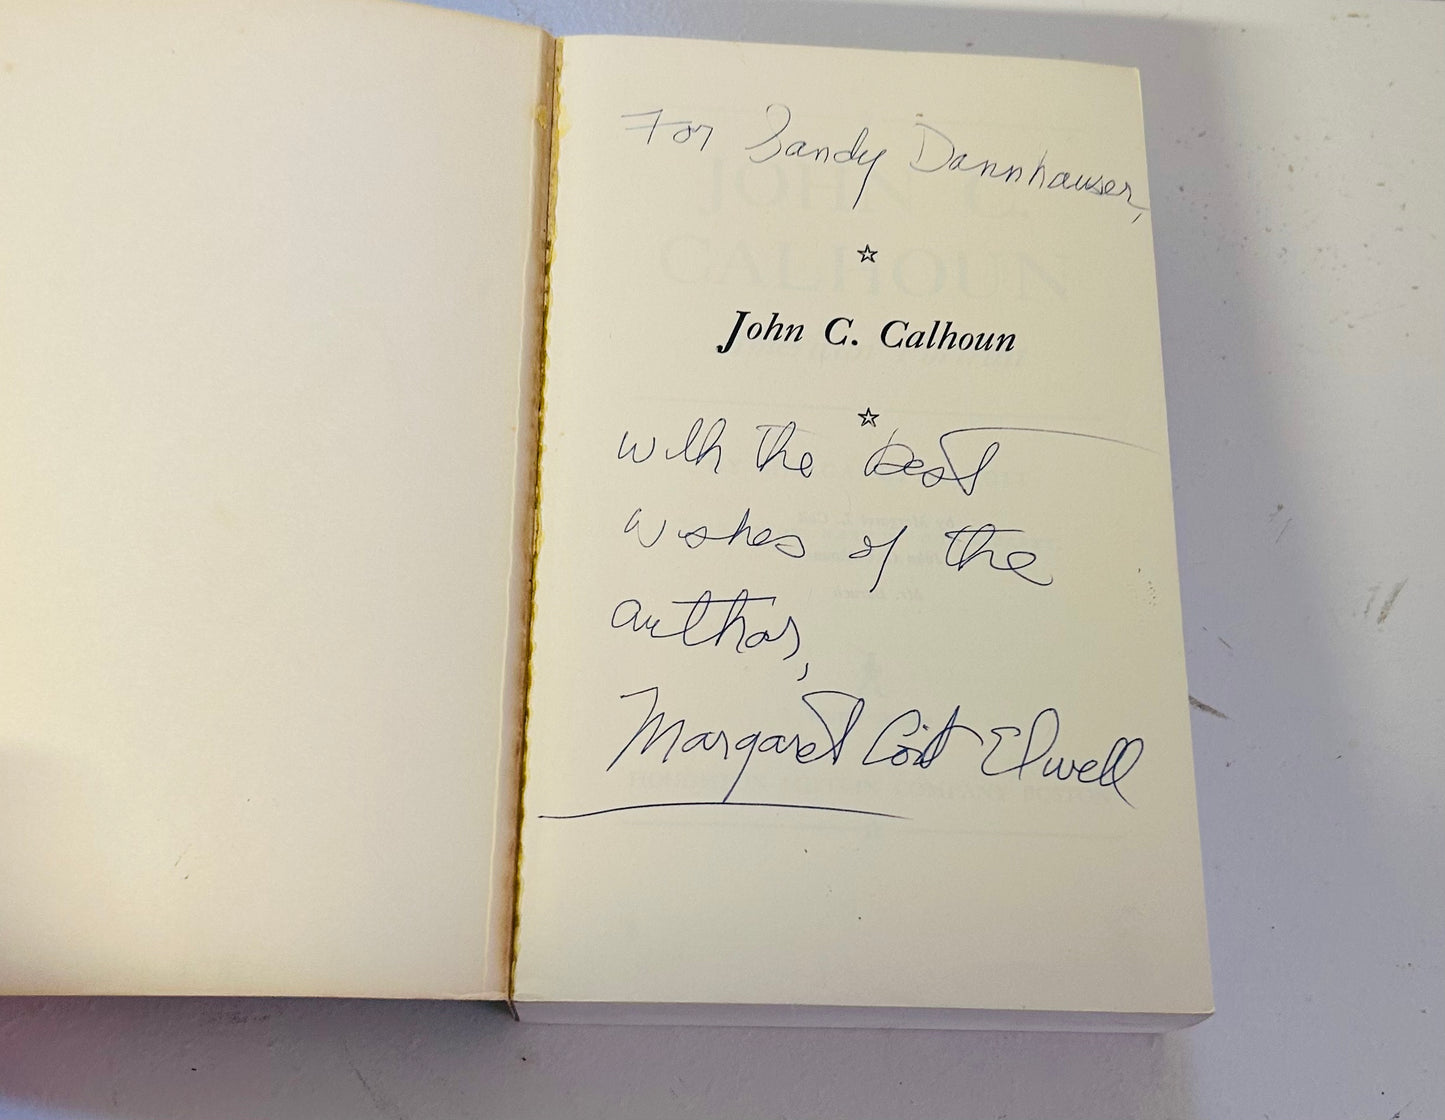 For Sandy Dannhauser,
☆
John C. Calhoun
☆
with the best
wishes of the
author,
Margaret Coit Elwell